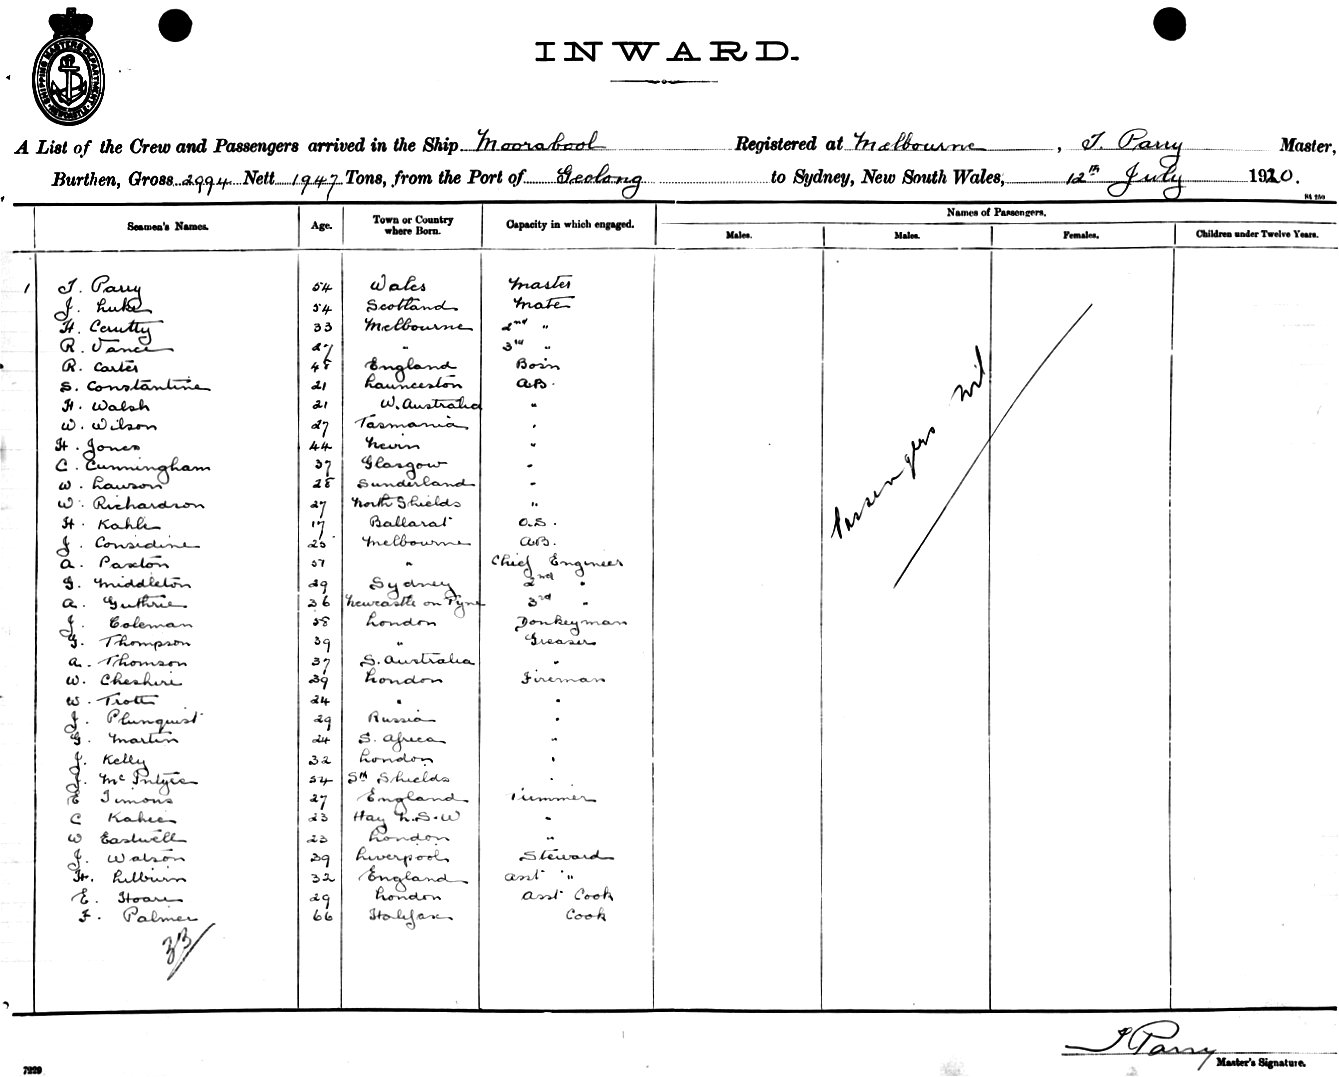 SHIPPING MASTERS DEPARTMENT NEWCASTLE
INWARD.
A List of the Crew and Passengers arrived in the Ship Moorabool Registered at Melbourne, T. Parry Master,
Burthen, Gross 2994 Nett 1947 Tons, from the Port of Geelong to Sydney, New South Wales, 12th July 1920.
Names of Passengers.
Seamen's Names. Age. Town or Country where Born. Capacity in which engaged. Males. Males. Females. Children under Twelve Years.
1 T. Parry 54 Wales Master
J. Luke 54 Scotland Mate
H. Cerutty 33 Melbourne 2nd "
R. Vance 27 " 3rd "
R. Carter 48 England Bosn
S. Constantine 21 Launceston A.B.
H. Walsh 21 W. Australia "
W. Wilson 27 Tasmania "
H. Jones 44 Nevin "
C. Cunningham 37 Glasgow "
W. Lawson 28 Sunderland "
W. Richardson 27 North Shields "
H. Kahle 17 Ballarat O.S.
J. Considine 25 Melbourne A.B.
A. Paxton 57 " Chief Engineer
G. Middleton 29 Sydney 2nd "
A. Guthrie 36 Newcastle on Tyne 3rd "
J. Coleman 58 London Donkeyman
G. Thompson 39 " Greaser
A. Thomson 37 S. Australia "
W. Cheshire 39 London Fireman
W. Trott 24 " "
J. Plunquist 29 Russia "
G. Martin 24 S. Africa "
J. Kelly 32 London "
J. McIntyre 54 Sth Shields "
E Timons 27 England Trimmer
C Kahee 23 Hay N.S.W "
W Eastwell 23 London "
J. Watson 39 Liverpool Steward
H. Lilburn 32 England asst "
E. Hoare 29 London asst Cook
F. Palmer 66 Halifax Cook
33
Passengers Nil
T Parry
Master's Signature.
7229